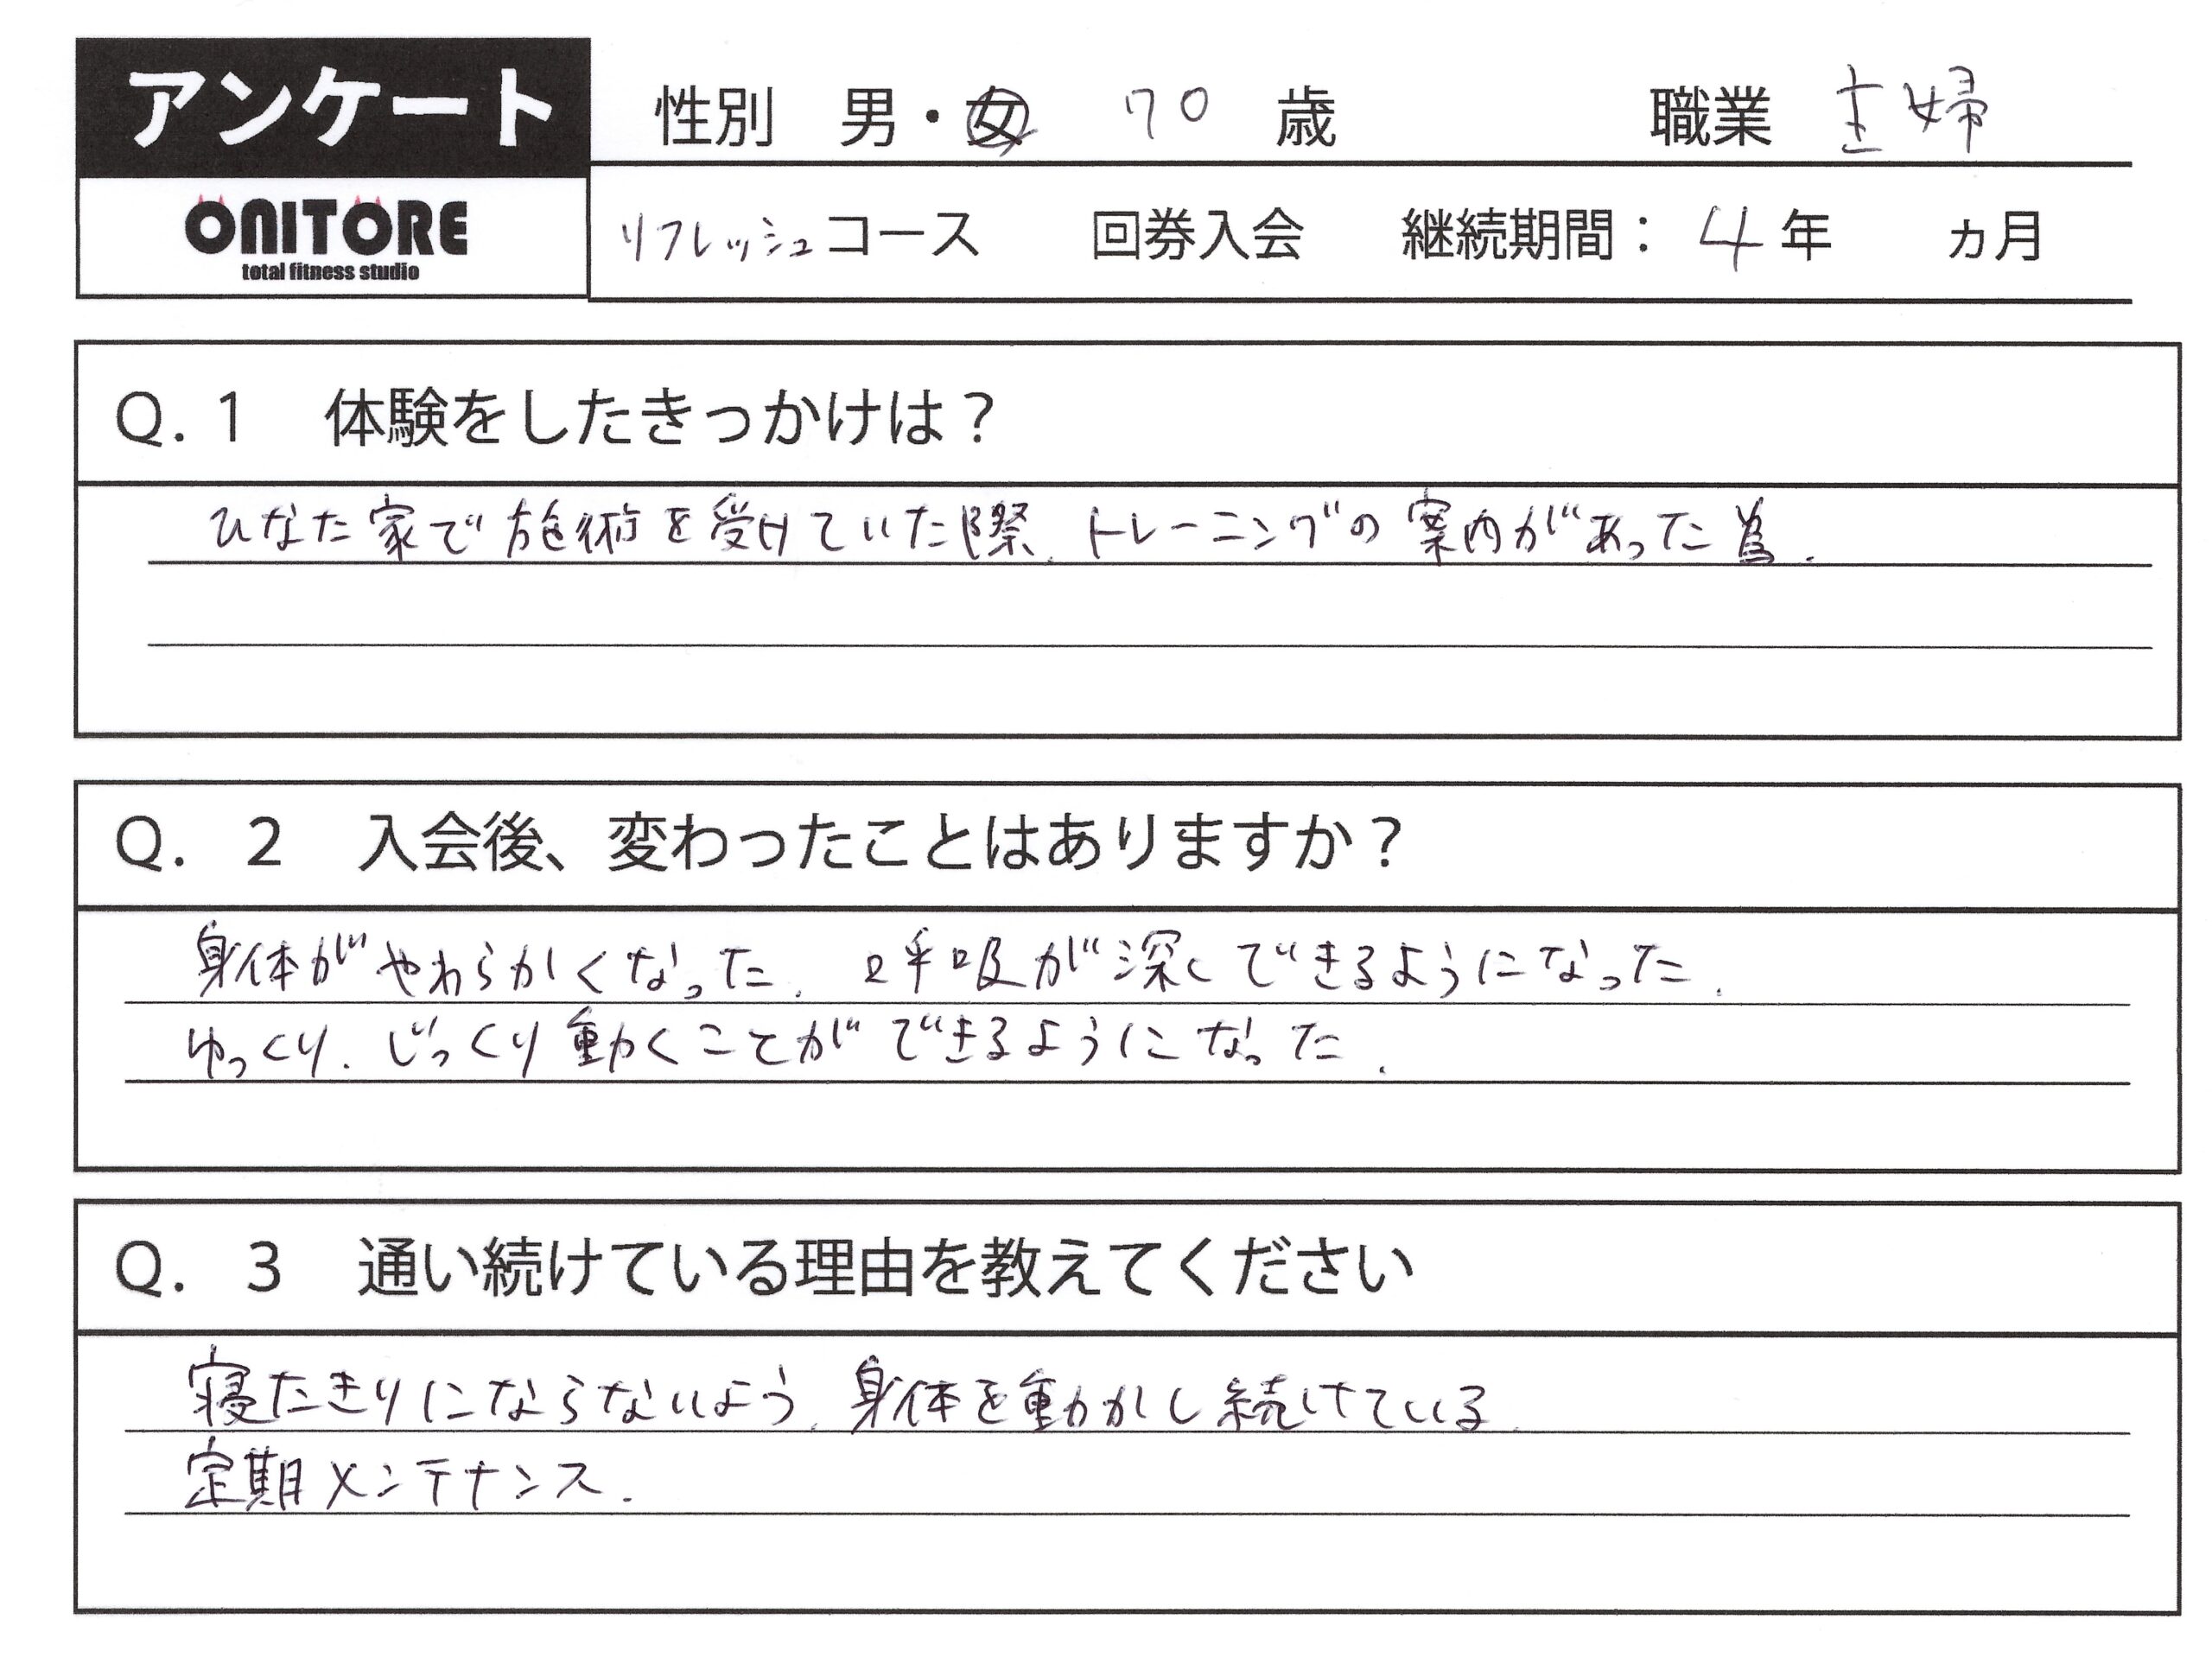 アンケート
性別 男・女 70 歳 職業 主婦
ONITORE
total fitness studio
リフレッシュコース 回券入会 継続期間：4年 ヵ月
Q.1 体験をしたきっかけは？
ひなた家で施術を受けていた際、トレーニングの案内があった為。
Q. 2 入会後、変わったことはありますか？
身体がやわらかくなった。呼吸が深くできるようになった。
ゆっくり、じっくり動くことができるようになった。
Q. 3 通い続けている理由を教えてください
寝たきりにならないよう、身体を動かし続けている。
定期メンテナンス。